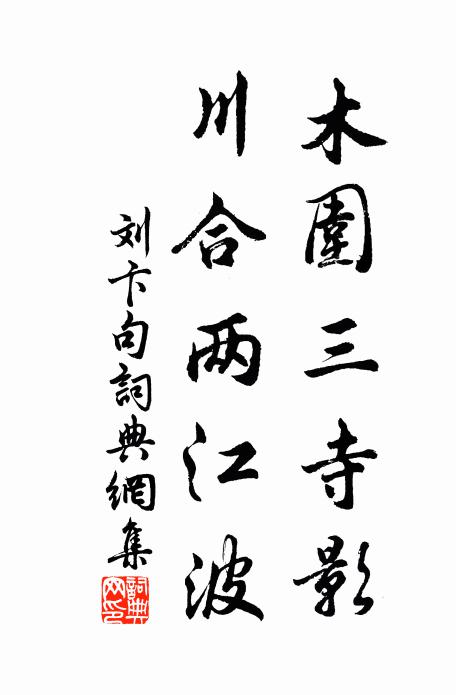 木圍三寺影
川合两江波
刘卞句詞典網集
詞典网印